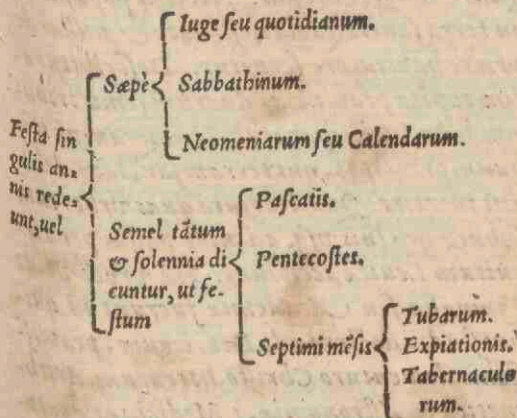 Festa sin
gulis an-
nis rede-
unt, uel
Sæpè
Iuge seu quotidianum.
Sabbathinum.
Neomeniarum seu Calendarum.
Semel tãtum
& solennia di
cuntur, ut fe-
stum
Pascatis.
Pentecostes.
Septimi mẽsis
Tubarum.
Expiationis.
Tabernaculo
rum.